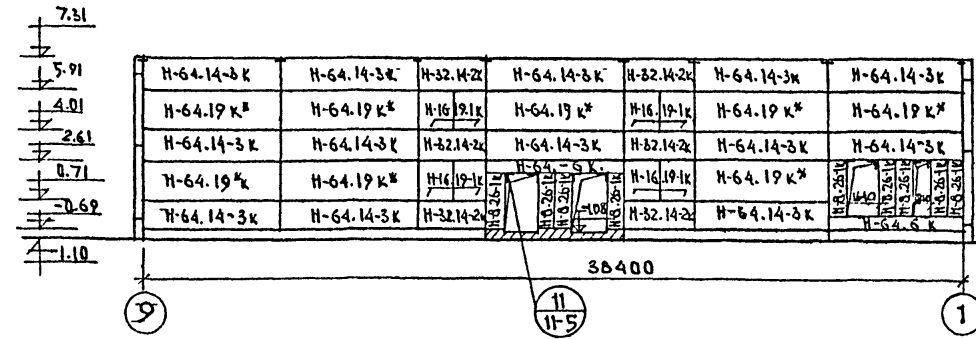 7.31
5.91
4.01
2.61
0.71
-0.69
-1.10
Н-64.14-3К Н-64.14-3К Н-32.14-2К Н-64.14-3К Н-32.14-2К Н-64.14-3К Н-64.14-3К
Н-64.19К* Н-64.19К* Н-16.19-1К Н-64.19К* Н-16.19-1К Н-64.19К* Н-64.19К*
Н-64.14-3К Н-64.14-3К Н-32.14-2К Н-64.14-3К Н-32.14-2К Н-64.14-3К Н-64.14-3К
Н-64.19*К Н-64.19К* Н-16.19-1К Н-64.-6К. Н-16.19-1К Н-64.19К*
Н-8.26-1К Н-8.26-1К Н-8.26-1К Н-8.26-1К Н-8.26-1К Н-8.26-1К Н-8.26-1К Н-8.26-1К
-1.08
Н-64.14-3К Н-64.14-3К Н-32.14-2К Н-32.14-2К Н-64.14-3К Н-64.6К
38400
9 11 1
11-5